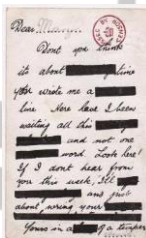 Dear
PASSED BY CENSOR
Dont you think
its about time
you wrote me a
line Here have I been
waiting all this
and not one
word. Look here!
If I don't hear from
you this week, I'll
and just
about wring your
Yours in a of a temper